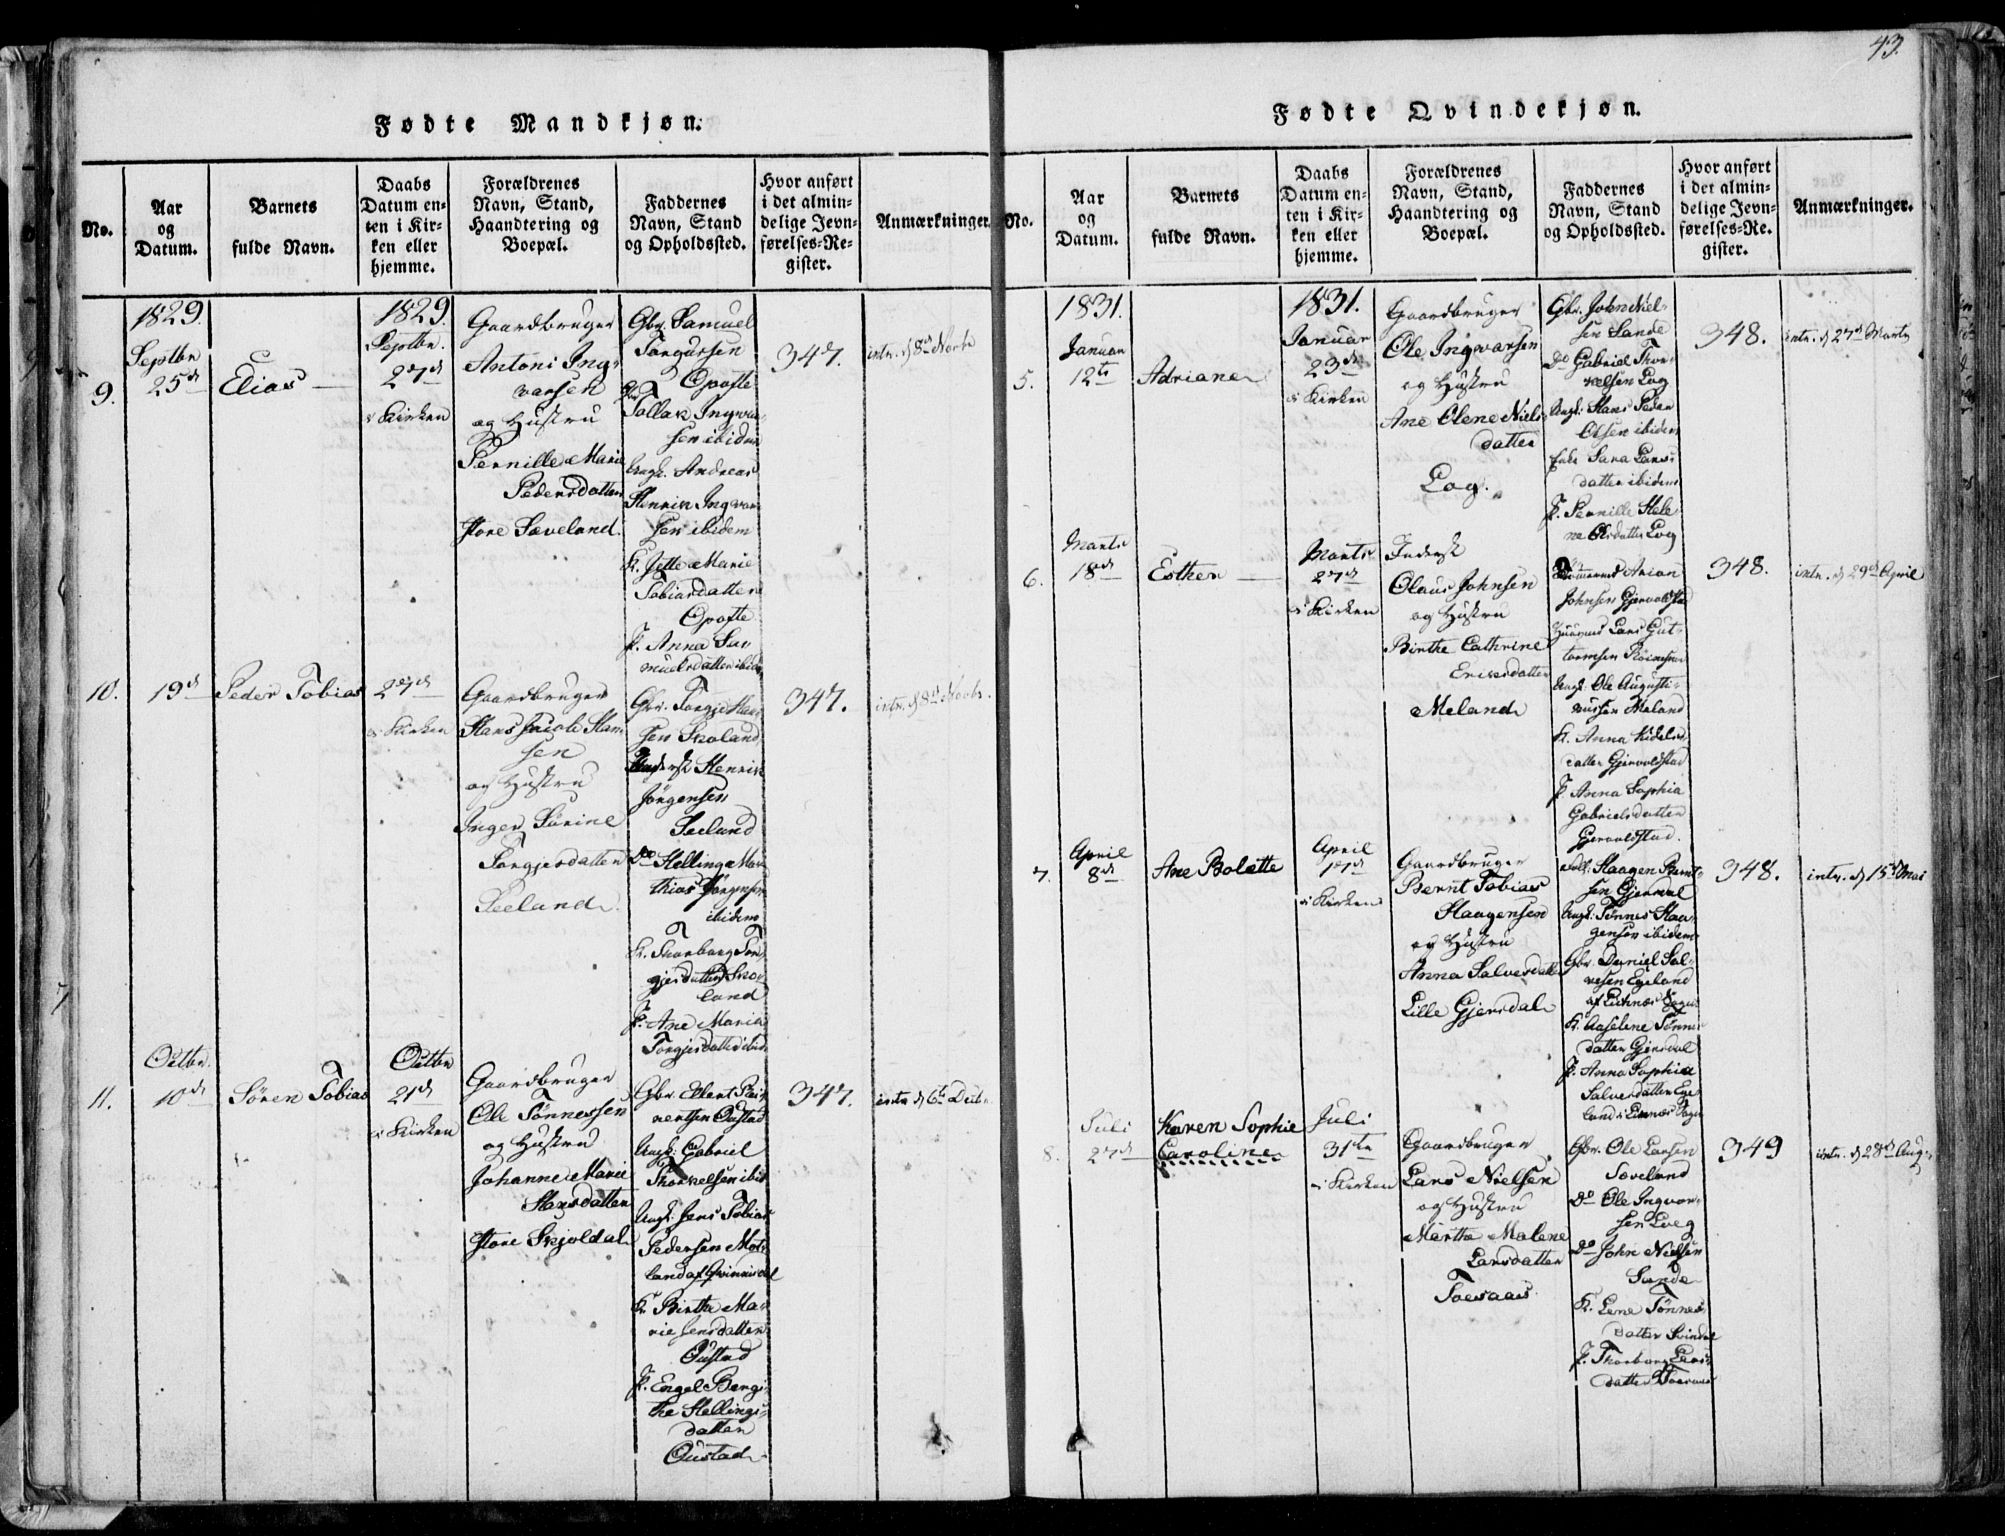 43.
Fødte Mandkjøn.
No.
Aar
og
Datum.
Barnets
fulde Navn.
Daabs
Datum en-
ten i Kir-
ken eller
hjemme.
Forældrenes
Navn, Stand,
Haandtering og
Boepæl.
Faddernes
Navn, Stand
og Opholdssted.
Hvor anført
i det almin-
delige Jevn-
førelses-Re-
gister.
Anmærkninger.
9.
1829.
Septbr
25d
Elias
1829.
Septbr.
27d
i Kirken
Gaardbruger
Antoni Ing-
varsen
og Hustru
Pernille Marie
Pedersdatter
Store Sæveland.
Gbr. Samuel
Torgussen
Opofte
Do
Tollak Ingvar
sen ibidem
Ungk. Andreas
Henrik Ingvar
sen ibidem
K. Jette Marie
Tobiasdatter
Opofte
P. Anna Sa-
muelsdatter ibidm
347.
intr. d 8d Novbr
10.
19d
Peder Tobias
27d
i Kirken
Gaardbruger
Hans Jacob Han
sen
og Hustru
Inger Sørine
Torgjersdatter
Seeland.
Gbr. Torgje Han
sen Skoland
Henrik
Jörgensen
Seeland
Do Helling Ma-
thias Jörgensen
ibidem
K. Thorborg Tor
gjersdatter Sko-
land
P. Ane Maria
Torgjersdatter ibid
347.
intr. d 8d Novbr.
11.
Octbr.
10d
Sören Tobias
Octbr
21d
i Kirken
Gaardbruger
Ole Tønnessen
og Hustru
Johanne Marie
Hansdatter
Store Skjoldal
Gbr. Elert Rei-
nertsen Oustad
Ungk. Gabriel
Thorkelsen ibid
Ungk. Jens Tobias
Pedersen Mot-
land af Qvinnisdal
K. Birthe Ma-
rie Jensdatter
Oustad
P. Engel Bergi-
the Hellings-
datter
Oustad
347.
intr. d 6t Decbr.
Fødte Qvindekjøn.
No.
Aar
og
Datum.
Barnets
fulde Navn.
Daabs
Datum en-
ten i Kir-
ken eller
hjemme.
Forældrenes
Navn, Stand,
Haandtering og
Boepæl.
Faddernes
Navn, Stand
og Opholdssted.
Hvor anført
i det almin-
delige Jevn-
førelses-Re-
gister.
Anmærkninger.
5.
1831.
Januar
12te
Adriane
1831.
Januar
23d
i Kirken
Gaardbruger
Ole Ingwarsen
og Hustru
Ane Olene Niels-
datter
Log.
Gbr. John Niel-
sen Sande
Do Gabriel Thor-
kelsen Log
Ungk. Hans Peder
Olsen ibidem
Enke Sara Lars-
datter ibidem
P. Pernille Hele-
ne Olsdatter Log
348.
intr. d 27d Marts
6.
Marts
18d
Esther
Marts
27d
i Kirken
Inderst
Olaus Johnsen
og Hustru
Birthe Cathrine
Ericsdatter
Meland
Arian
Johnsen Gjervoldstad
Huusmd Lars Gut-
tormsen
Ungk. Ole Augusti-
nussen Meland
K. Anna
datter Gjervoldstad
P. Anna Sophia
Gabrielsdatter
Gjervoldstad.
348.
intr. d 29d April
7.
April
8d
Ane Bolette
April
17d
i Kirken
Gaardbruger
Bernt Tobias
Haagensen
og Hustru
Anna Salvesdatter
Lille Gjersdal
Haagen Bernt-
sen Gjersdal
Ungk. Tønnes Haa-
gensen ibidem
Gbr. Daniel Sal-
vesen Egeland
K. Aaselene Tønnes
datter Gjersdal
P. Anna Sophia
Salvesdatter Ege
348.
intr. d 15d Mai
8.
Juli
27d
Karen Sophie
Caroline
Juli
31te
i Kirken
Gaardbruger
Lars Nielsen
og Hustru
Marthe Malene
Larsdatter
Toesaas
Gbr. Ole Larsen
Soveland
Do Ole Ingvar-
sen Log
Do John Nielsen
Sande
K. Lene Tønnes
datter Svindal
P. Thorborg Lars-
datter Toesaas
349
intr. d 28d Aug.